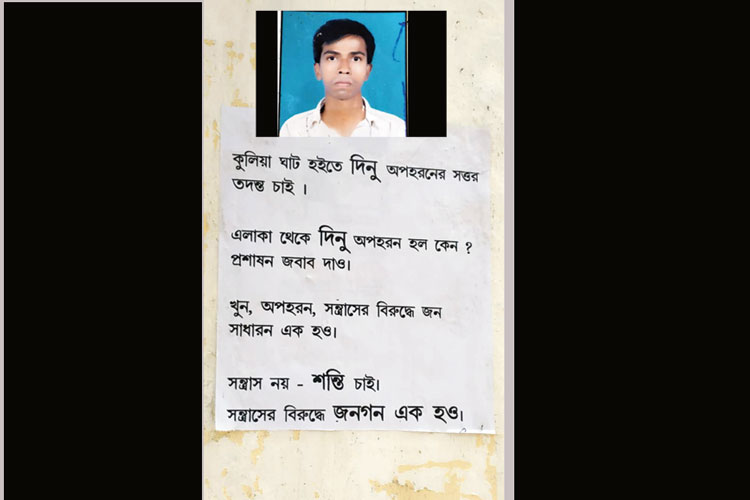 কুলিয়া ঘাট হইতে দিনু অপহরনের সত্তর
তদন্ত চাই ।
এলাকা থেকে দিনু অপহরন হল কেন ?
প্রশাষন জবাব দাও।
খুন, অপহরন, সন্ত্রাসের বিরুদ্ধে জন
সাধারন এক হও।
সন্ত্রাস নয় - শন্তি চাই।
সন্ত্রাসের বিরুদ্ধে জনগন এক হও।